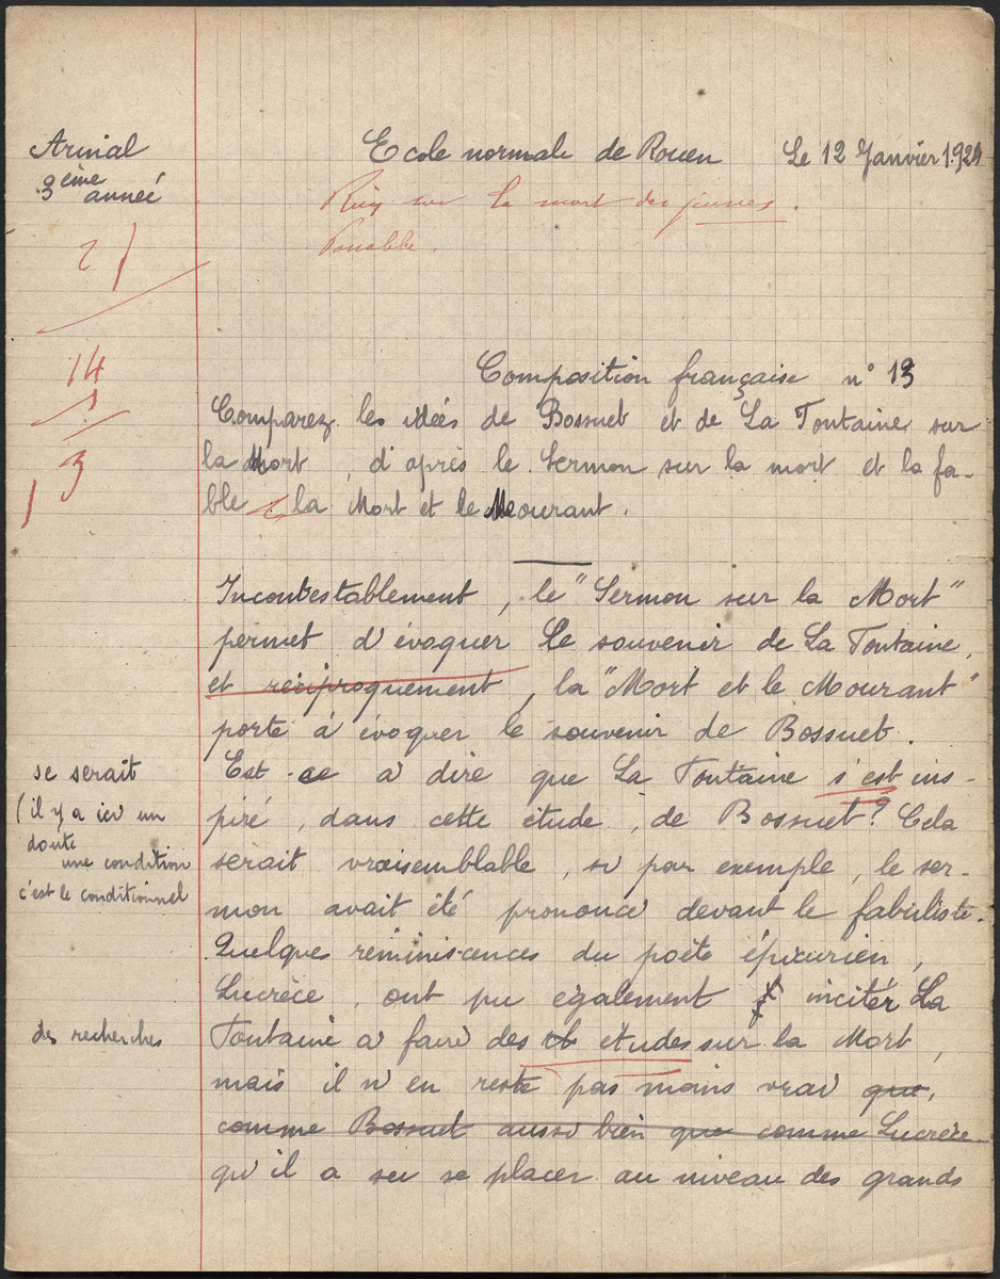 Arinal
3ème année
Ecole normale de Rouen
Le 12 Janvier 1924
Rien sur la mort des jeunes.
Passable.
21
14
13
Composition française n° 13
Comparez les idées de Bossuet et de La Fontaine sur
la Mort, d'après le Sermon sur la mort et la fa-
ble : la Mort et le Mourant.
Incontestablement, le "Sermon sur la Mort"
permet d'évoquer le souvenir de La Fontaine,
et réciproquement, la "Mort et le Mourant"
porte à évoquer le souvenir de Bossuet.
Est-ce à dire que La Fontaine s'est ins-
piré, dans cette étude, de Bossuet? Cela
serait vraisemblable, si par exemple, le ser-
mon avait été prononcé devant le fabuliste.
Quelques réminiscences du poète épicurien,
Lucrèce, ont pu également inciter La
Fontaine à faire des études sur la Mort,
mais il n'en reste pas moins vrai que,
comme Bossuet aussi bien que comme Lucrèce
qu'il a su se placer au niveau des grands
se serait
(il y a ici un
doute
une condition
c'est le conditionnel
des recherches